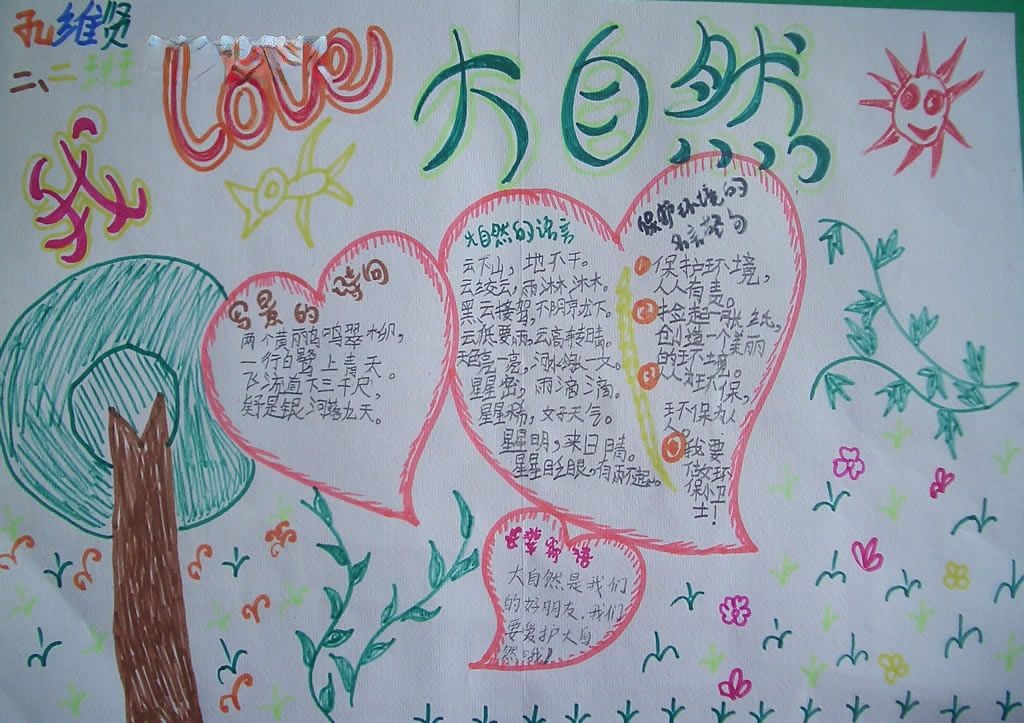 孔维贤
二、二班
我
LOVE
大自然
写景的诗词
两个黄鹂鸣翠柳,
一行白鹭上青天。
飞流直下三千尺,
疑是银河落九天。
大自然的语言
云下山,地不干。
云绞云,雨淋淋。
黑云接驾,不阴就下。
云低要雨,云高转晴。
亮一亮,
星星密,雨滴滴。
星星稀,好天气。
星星明,来日晴。
星星眨眼,有雨不远。
保护环境的
名言警句
①保护环境,
人人有责。
②捡起一张纸,
创造一个美丽
的环境。
③人人为环保,
环保为人
人。
④我要
做环
保小卫
士!
大自然是我们
的好朋友,我们
要爱护大自
然哦!